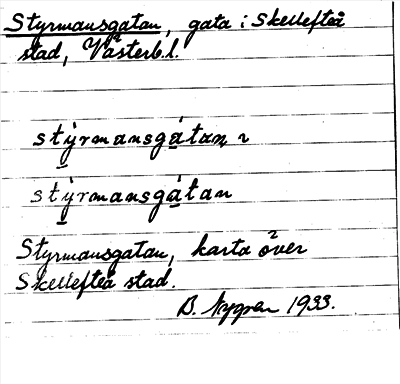 Styrmansgatan, gata i Skellefteå
stad, Västerb.l.
stýrmansgátan 2
stýrmansgátan
Styrmansgatan, karta över
Skellefteå stad.
B. Nygren 1933.